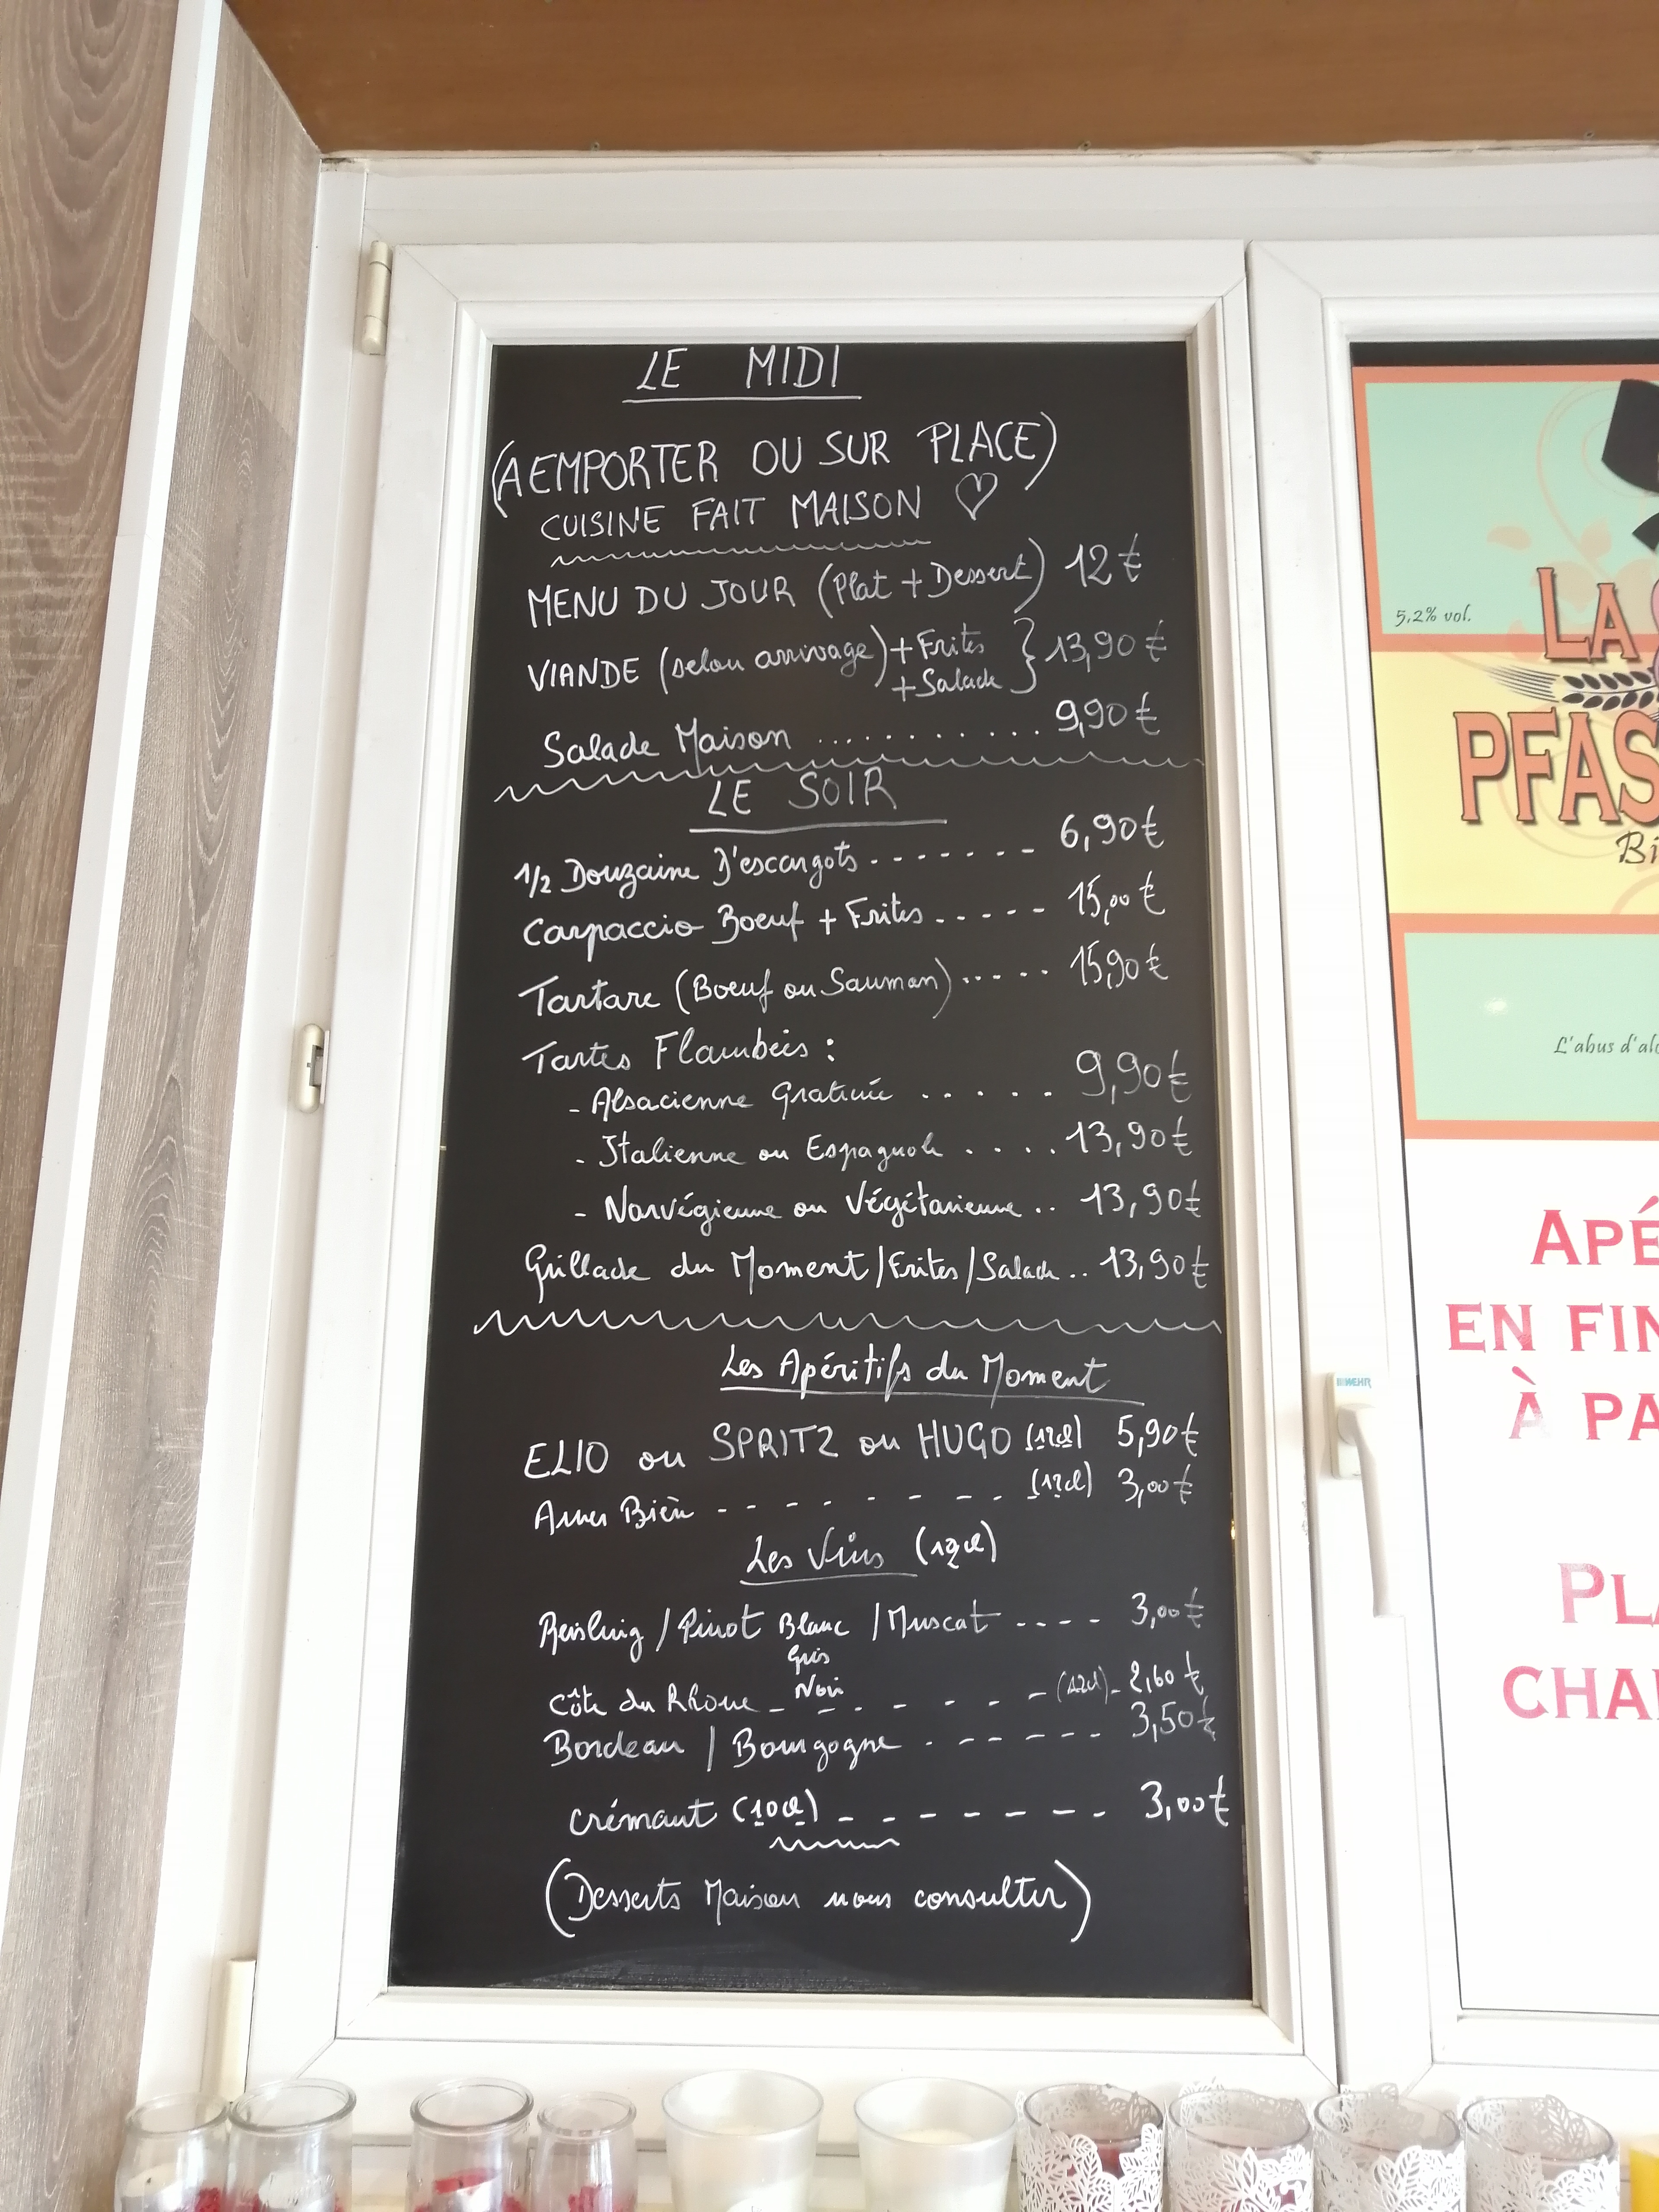 LE MIDI
(A EMPORTER OU SUR PLACE)
CUISINE FAIT MAISON ♡
MENU DU JOUR (Plat + Dessert) 12 €
VIANDE (selon arrivage) + Frites } 13,90 €
+ Salade
Salade Maison ............ 9,90 €
LE SOIR
1/2 Douzaine D'escargots ------- 6,90 €
Carpaccio Boeuf + Frites ----- 15,00 €
Tartare (Boeuf ou Saumon) ----- 15,90 €
Tartes Flambées :
- Alsacienne Gratinée ..... 9,90 €
- Italienne ou Espagnole .... 13,90 €
- Norvégienne ou Végétarienne .. 13,90 €
Grillade du Moment / Frites / Salade .. 13,90 €
Les Apéritifs du Moment
ELIO ou SPRITZ ou HUGO (12cl) 5,90 €
Amer Bière - - - - - - - - (12cl) 3,00 €
Les Vins (12cl)
Riesling / Pinot Blanc / Muscat ---- 3,00 €
Gris
Noir
Côte du Rhône - - - - - - (12cl) - 2,60 €
Bordeau / Bourgogne ------ 3,50 €
Crémant (10cl) - - - - - - - 3,00 €
(Desserts Maison nous consulter)
5,2% vol.
LA
PFAS
Bi
L'abus d'alc
APÉ
EN FIN
À PA
PLA
CHA
WEHR